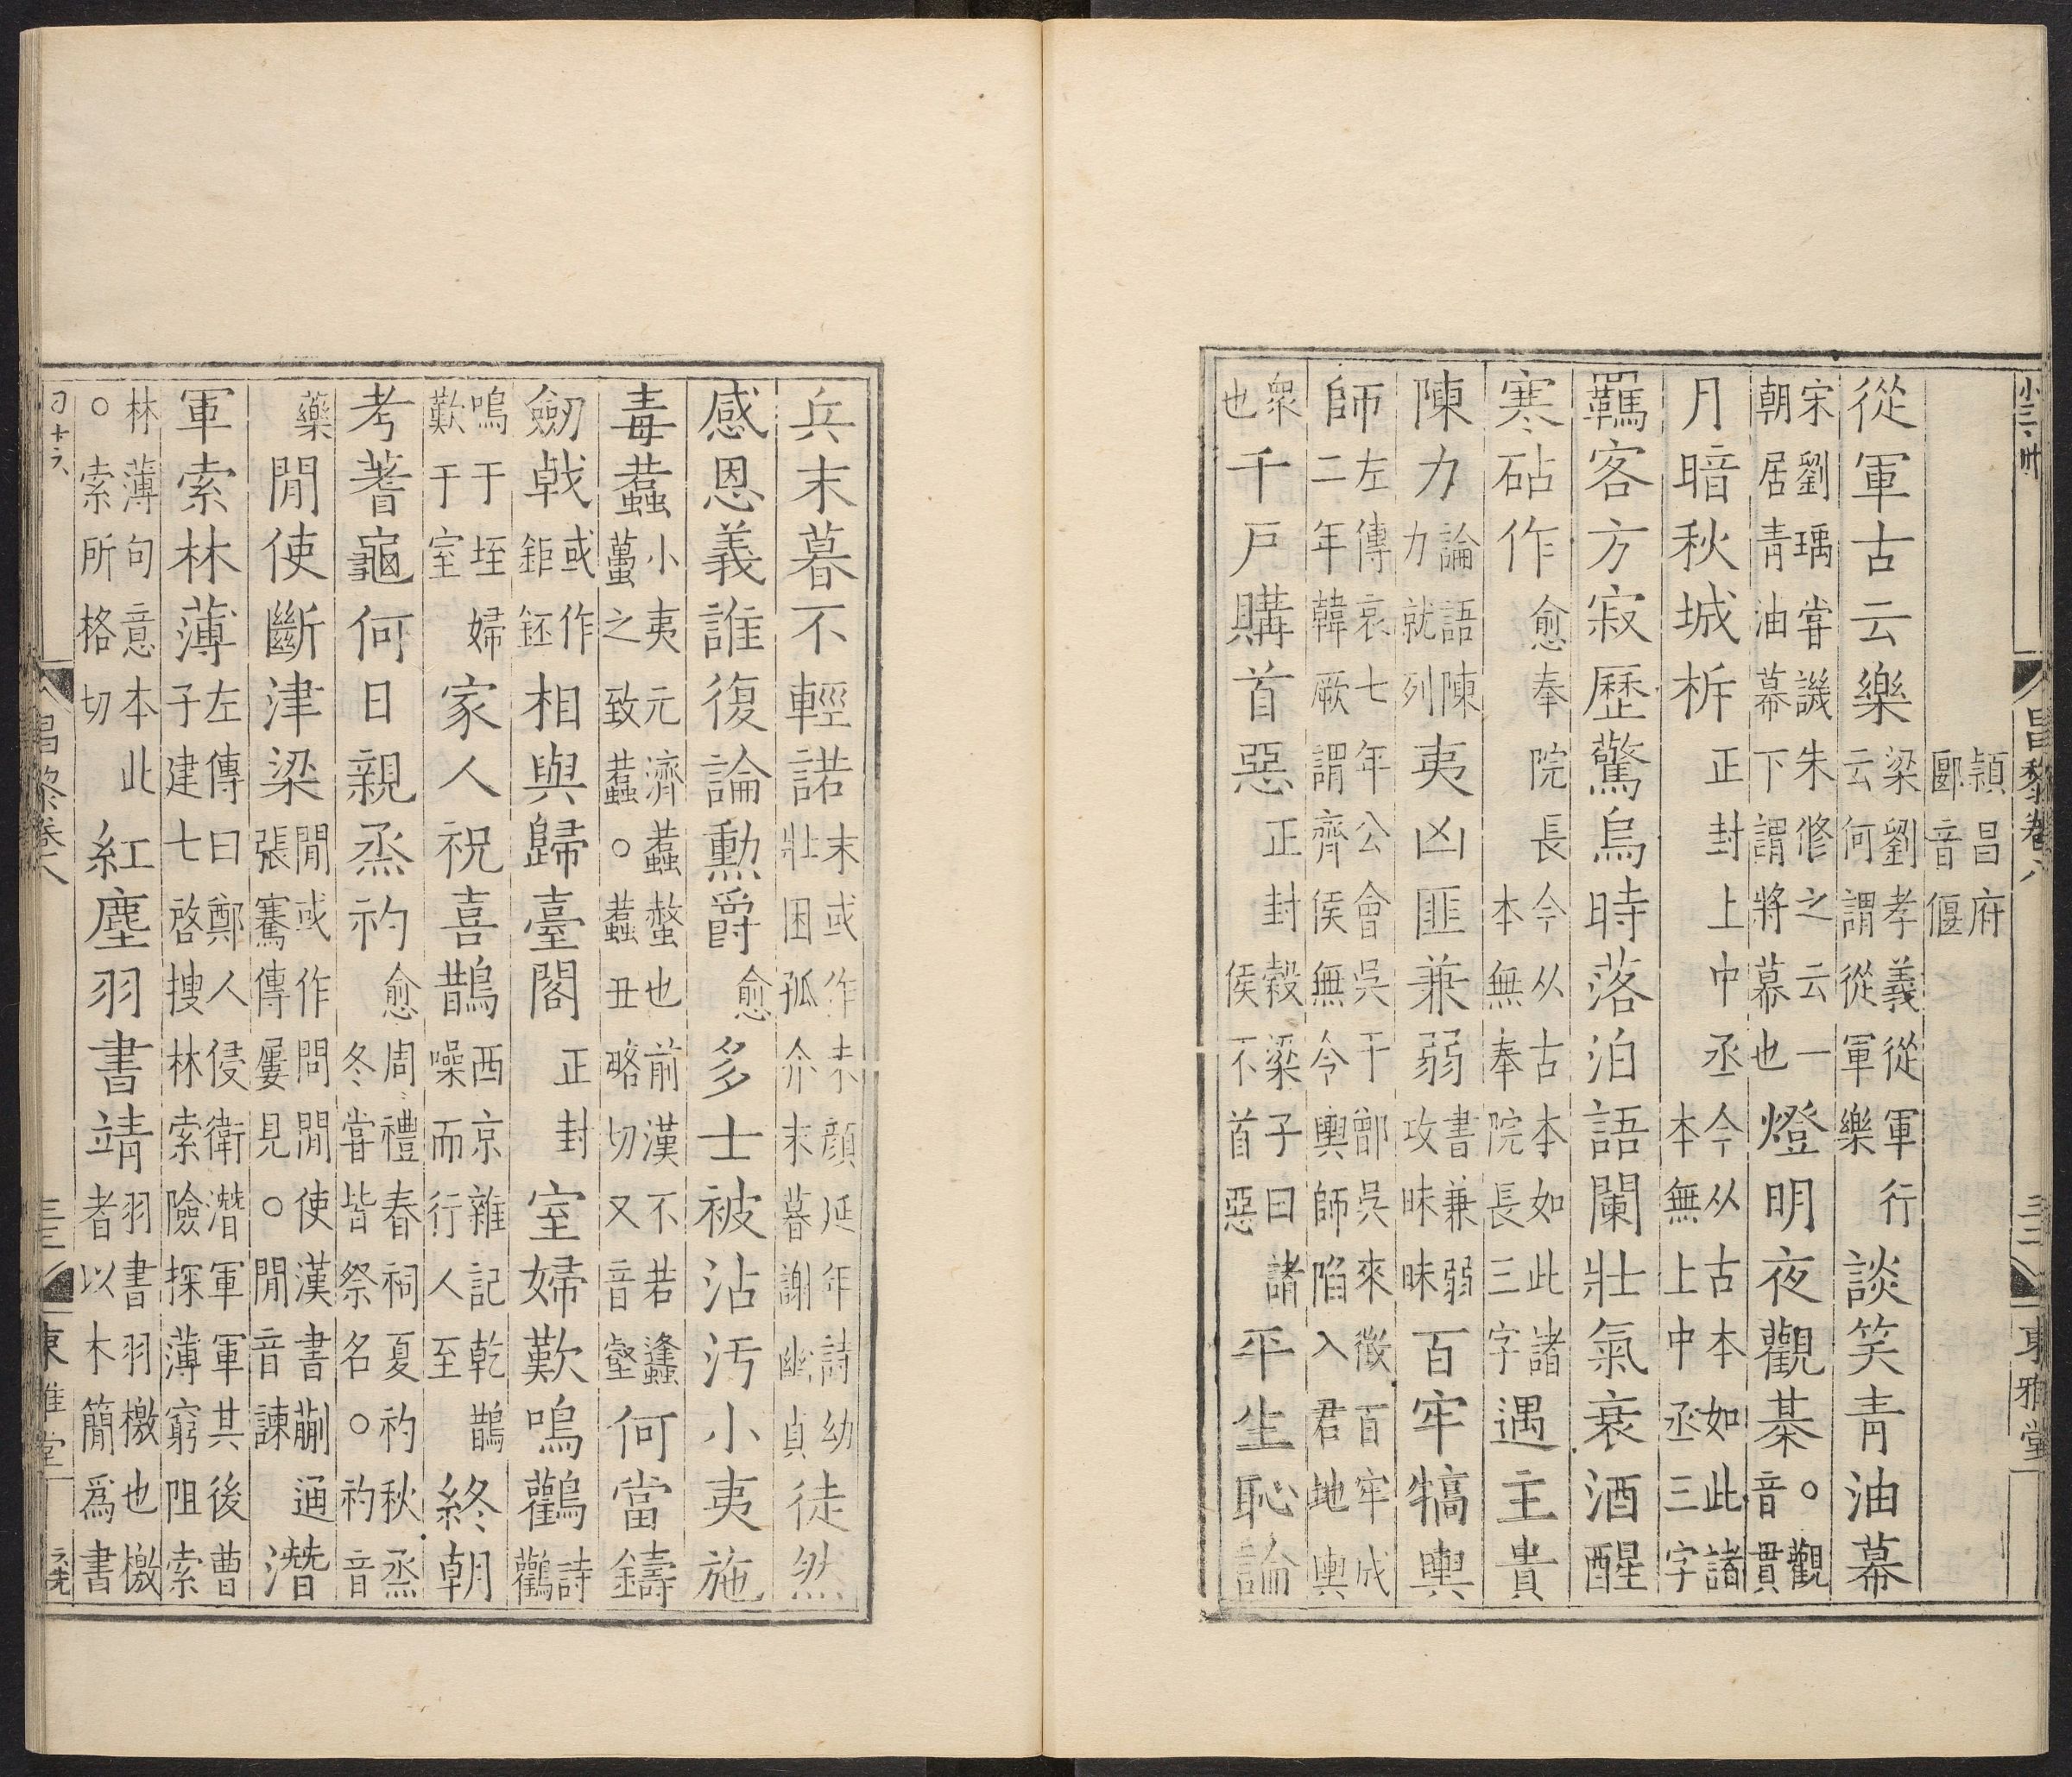 小三
昌黎卷八
三二
東雅堂
潁昌府郾音偃
從軍古云樂梁劉孝義從軍行云何謂從軍樂談笑青油幕
宋劉瑀嘗譏朱修之云一朝居青油幕下謂將幕也燈明夜觀棊○觀音貫
月暗秋城柝正封上中丞今从古本如此諸本無上中丞三字
羈客方寂歷驚烏時落泊語闌壯氣衰酒醒
寒砧作愈奉院長今从古本如此諸本無奉院長三字遇主貴
陳力論語陳力就列夷凶匪兼弱書兼弱攻昧昧百牢犒輿
師左傳哀七年公會吳于鄫吳來徵百牢成二年韓厥謂齊侯無令輿師陷入君地輿
衆也千戶購首惡正封穀梁子曰諸侯不首惡平生恥論
兵末暮不輕諾末或作未顏延年詩幼壯困孤介末暮謝幽貞徒然
感恩義誰復論勳爵愈多士被沾污小夷施
毒蠚小夷元濟蠚螫也前漢不若蠭蠆之致蠚○蠚丑略切又音壑何當鑄
劒戟或作鉅鉟相與歸臺閣正封室婦歎鳴鸛詩鸛
鳴于垤婦歎于室家人祝喜鵲西京雜記乾鵲噪而行人至終朝
考蓍龜何日親烝礿愈周禮春祠夏礿秋烝冬嘗皆祭名○礿音
藥閒使斷津梁閒或作問閒使漢書蒯通張騫傳屢見○閒音諫潛
軍索林薄左傳曰鄭人侵衛潛軍軍其後曹子建七啓搜林索險探薄窮阻索
林薄句意本此○索所格切紅塵羽書靖羽書羽檄也檄者以木簡爲書
昌黎卷八
三三
東雅堂